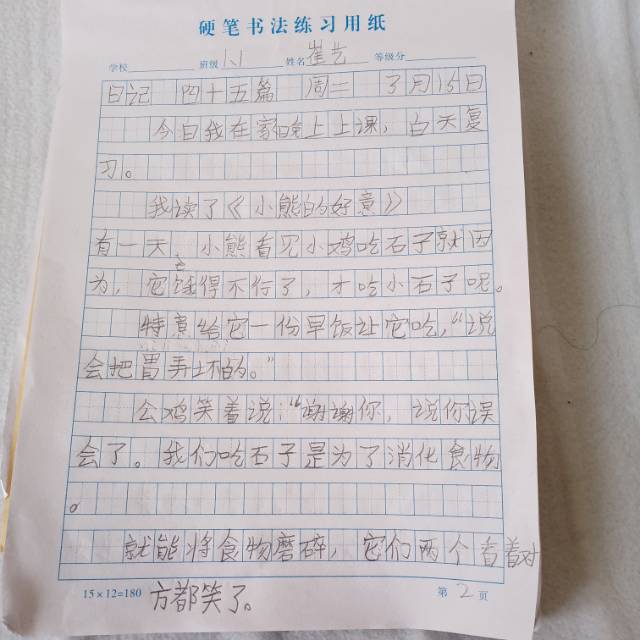 硬笔书法练习用纸
学校 班级 1.1 姓名 崔艺 等级分
日记 四十五篇 周二 3月15日
今日我在家晚上上课，白天复
习。
我读了《小熊的好意》
有一天，小熊看见小鸡吃石子就因
为，它饿得不行了，才吃小石子呢。
特意给它一份早饭让它吃，“说
会把胃弄坏的。”
公鸡笑着说“谢谢你，说你误
会了。我们吃石子是为了消化食物
。
就能将食物磨碎，它们两个看着对
15×12=180 第 2 页
方都笑了。